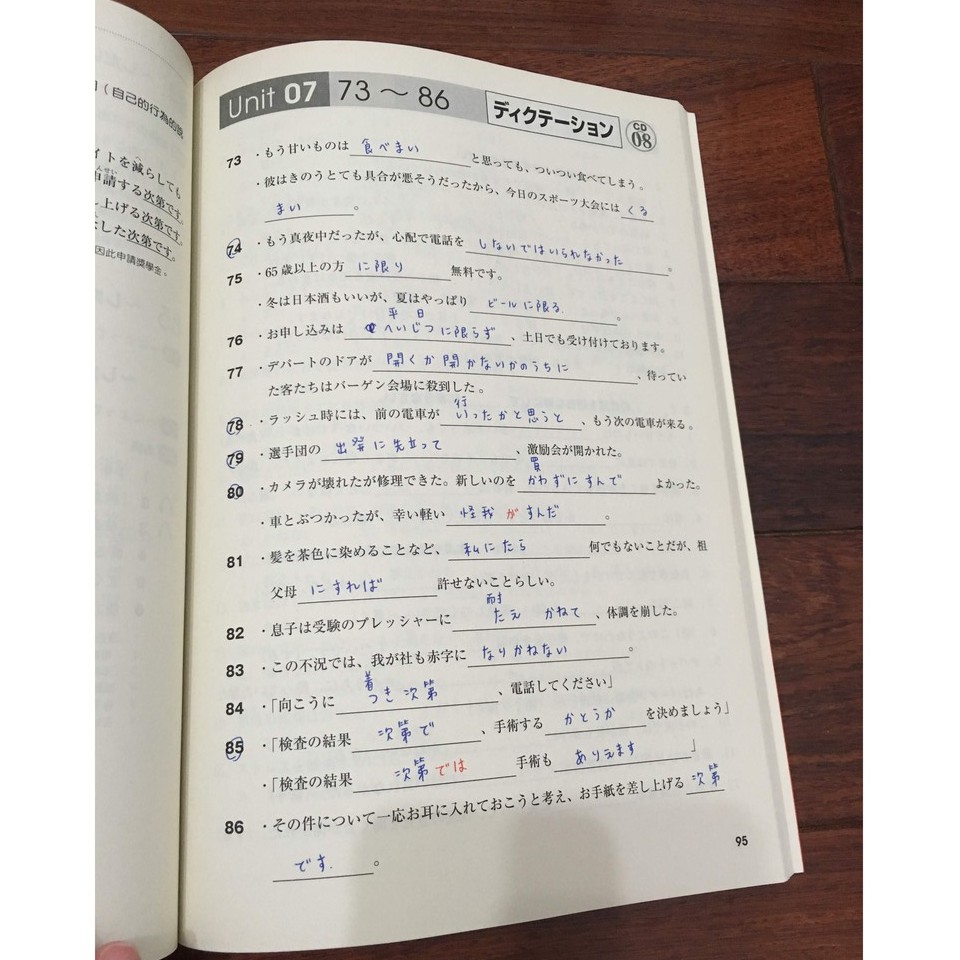 (自己的行為的說
イトを減らしても
んせい
申請する次第です。
し上げる次第です。
した次第です。
因此申請獎學金。
Unit 07 73～86 ディクテーション CD 08
73 ・もう甘いものは 食べまい と思っても、ついつい食べてしまう。
・彼はきのうとても具合が悪そうだったから、今日のスポーツ大会には くる
まい 。
74 ・もう真夜中だったが、心配で電話を しないではいられなかった 。
75 ・65歳以上の方 に限り 無料です。
・冬は日本酒もいいが、夏はやっぱり ビールに限る. 。
平日
76 ・お申し込みは へいじつに限らず 、土日でも受け付けております。
77 ・デパートのドアが 開くか開かないかのうちに 、待ってい
た客たちはバーゲン会場に殺到した。
行
78 ・ラッシュ時には、前の電車が いったかと思うと 、もう次の電車が来る。
79 ・選手団の 出発に先立って 、激励会が開かれた。
買
80 ・カメラが壊れたが修理できた。新しいのを かわずにすんで よかった。
・車とぶつかったが、幸い軽い 怪我がすんだ 。
81 ・髪を茶色に染めることなど、 私にたら 何でもないことだが、祖
父母 にすれば 許せないことらしい。
耐
82 ・息子は受験のプレッシャーに たえ かねて 、体調を崩した。
83 ・この不況では、我が社も赤字に なりかねない 。
着
84 ・「向こうに つき次第 、電話してください」
85 ・「検査の結果 次第で 、手術する かどうか を決めましょう」
・「検査の結果 次第では 手術も ありえます 」
86 ・その件について一応お耳に入れておこうと考え、お手紙を差し上げる 次第
です. 。
95